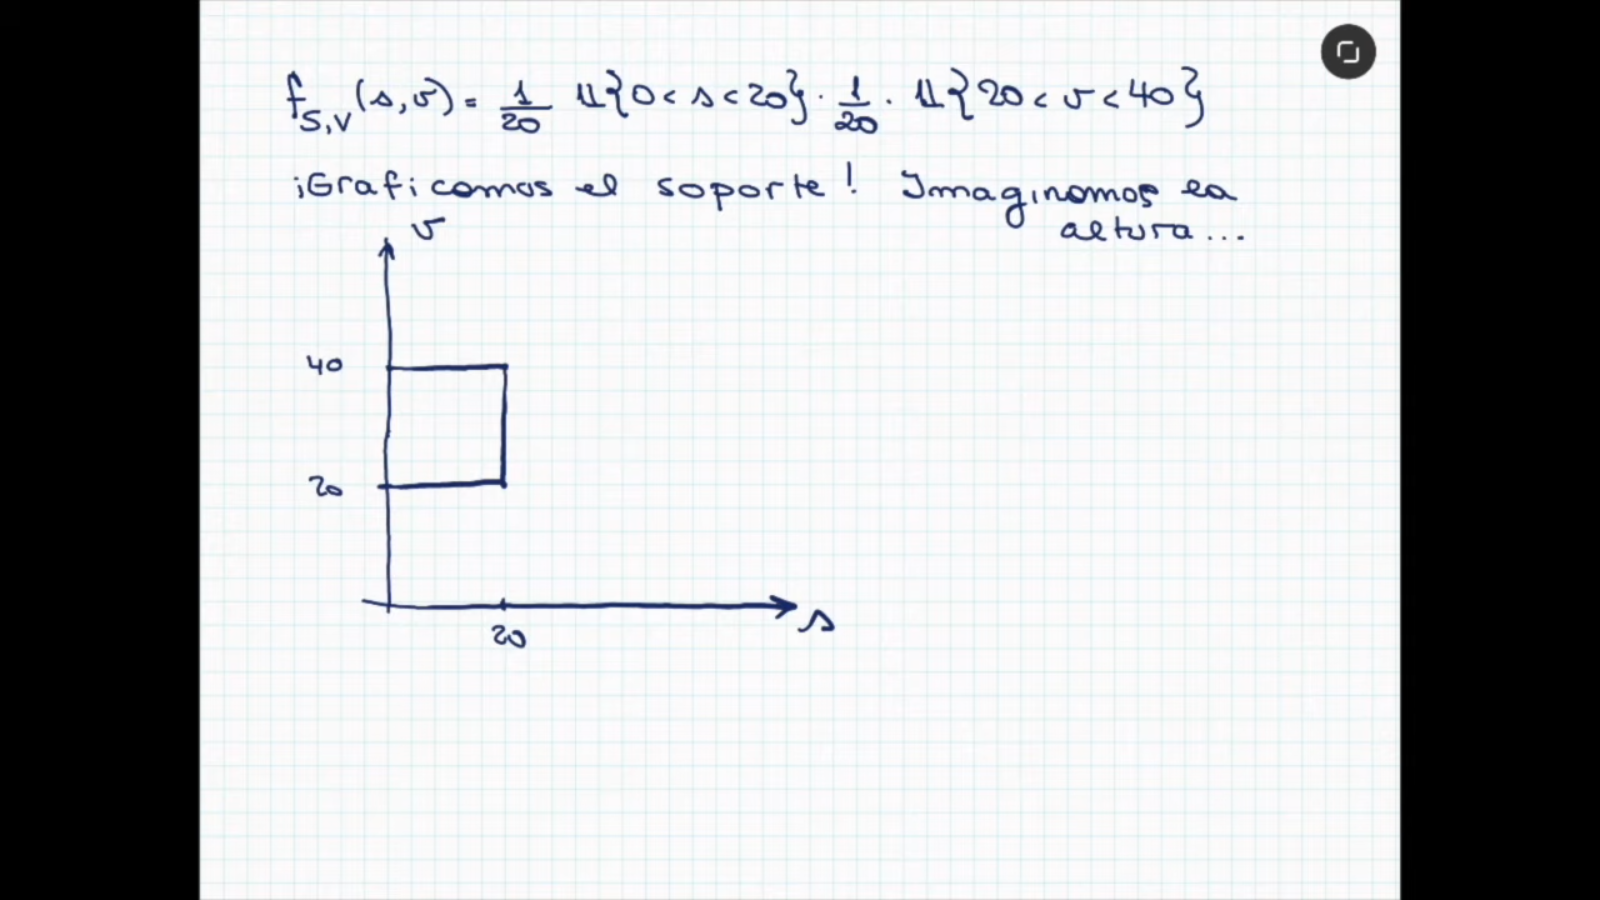 f_{S,V}(s,v) = 1/20 𝟙{0 < s < 20} · 1/20 · 𝟙{20 < v < 40}
¡Graficamos el soporte! Imaginamos la
altura...
v
40
20
20
s